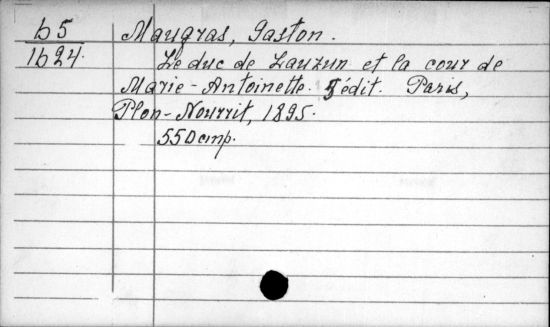 b5 Maugras, Gaston.
1624. Le duc de Lauzun et la cour de
Marie-Antoinette. 5 édit. Paris,
Plon-Nourrit, 1895.
550 cmp.